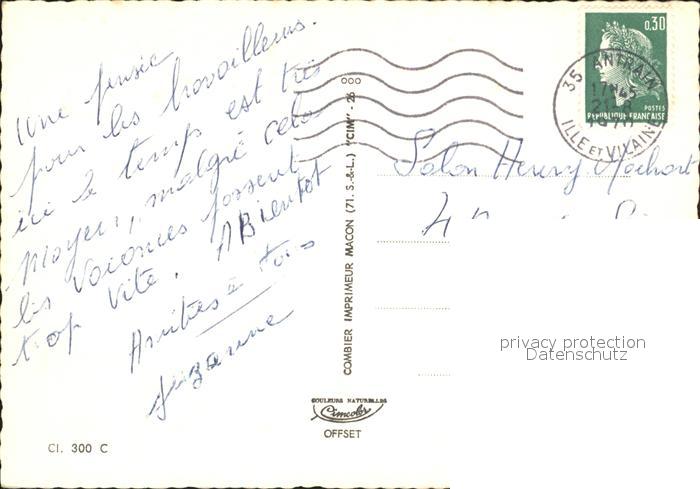 Une pensée
pour les travailleurs.
ici le temps est très
moyen, malgré cela
les vacances passent
trop vite. A Bientôt
Amitiés à tous
Suzanne
CI. 300 C
COMBIER IMPRIMEUR MACON (71. S.-&-L.) "CIM" - 26
COULEURS NATURELLES
Cimcolor
OFFSET
0,30
POSTES
REPUBLIQUE FRANÇAISE
35 ANTRAIN
17H45
ILLE ET VILAINE
Salon Henry
privacy protection
Datenschutz